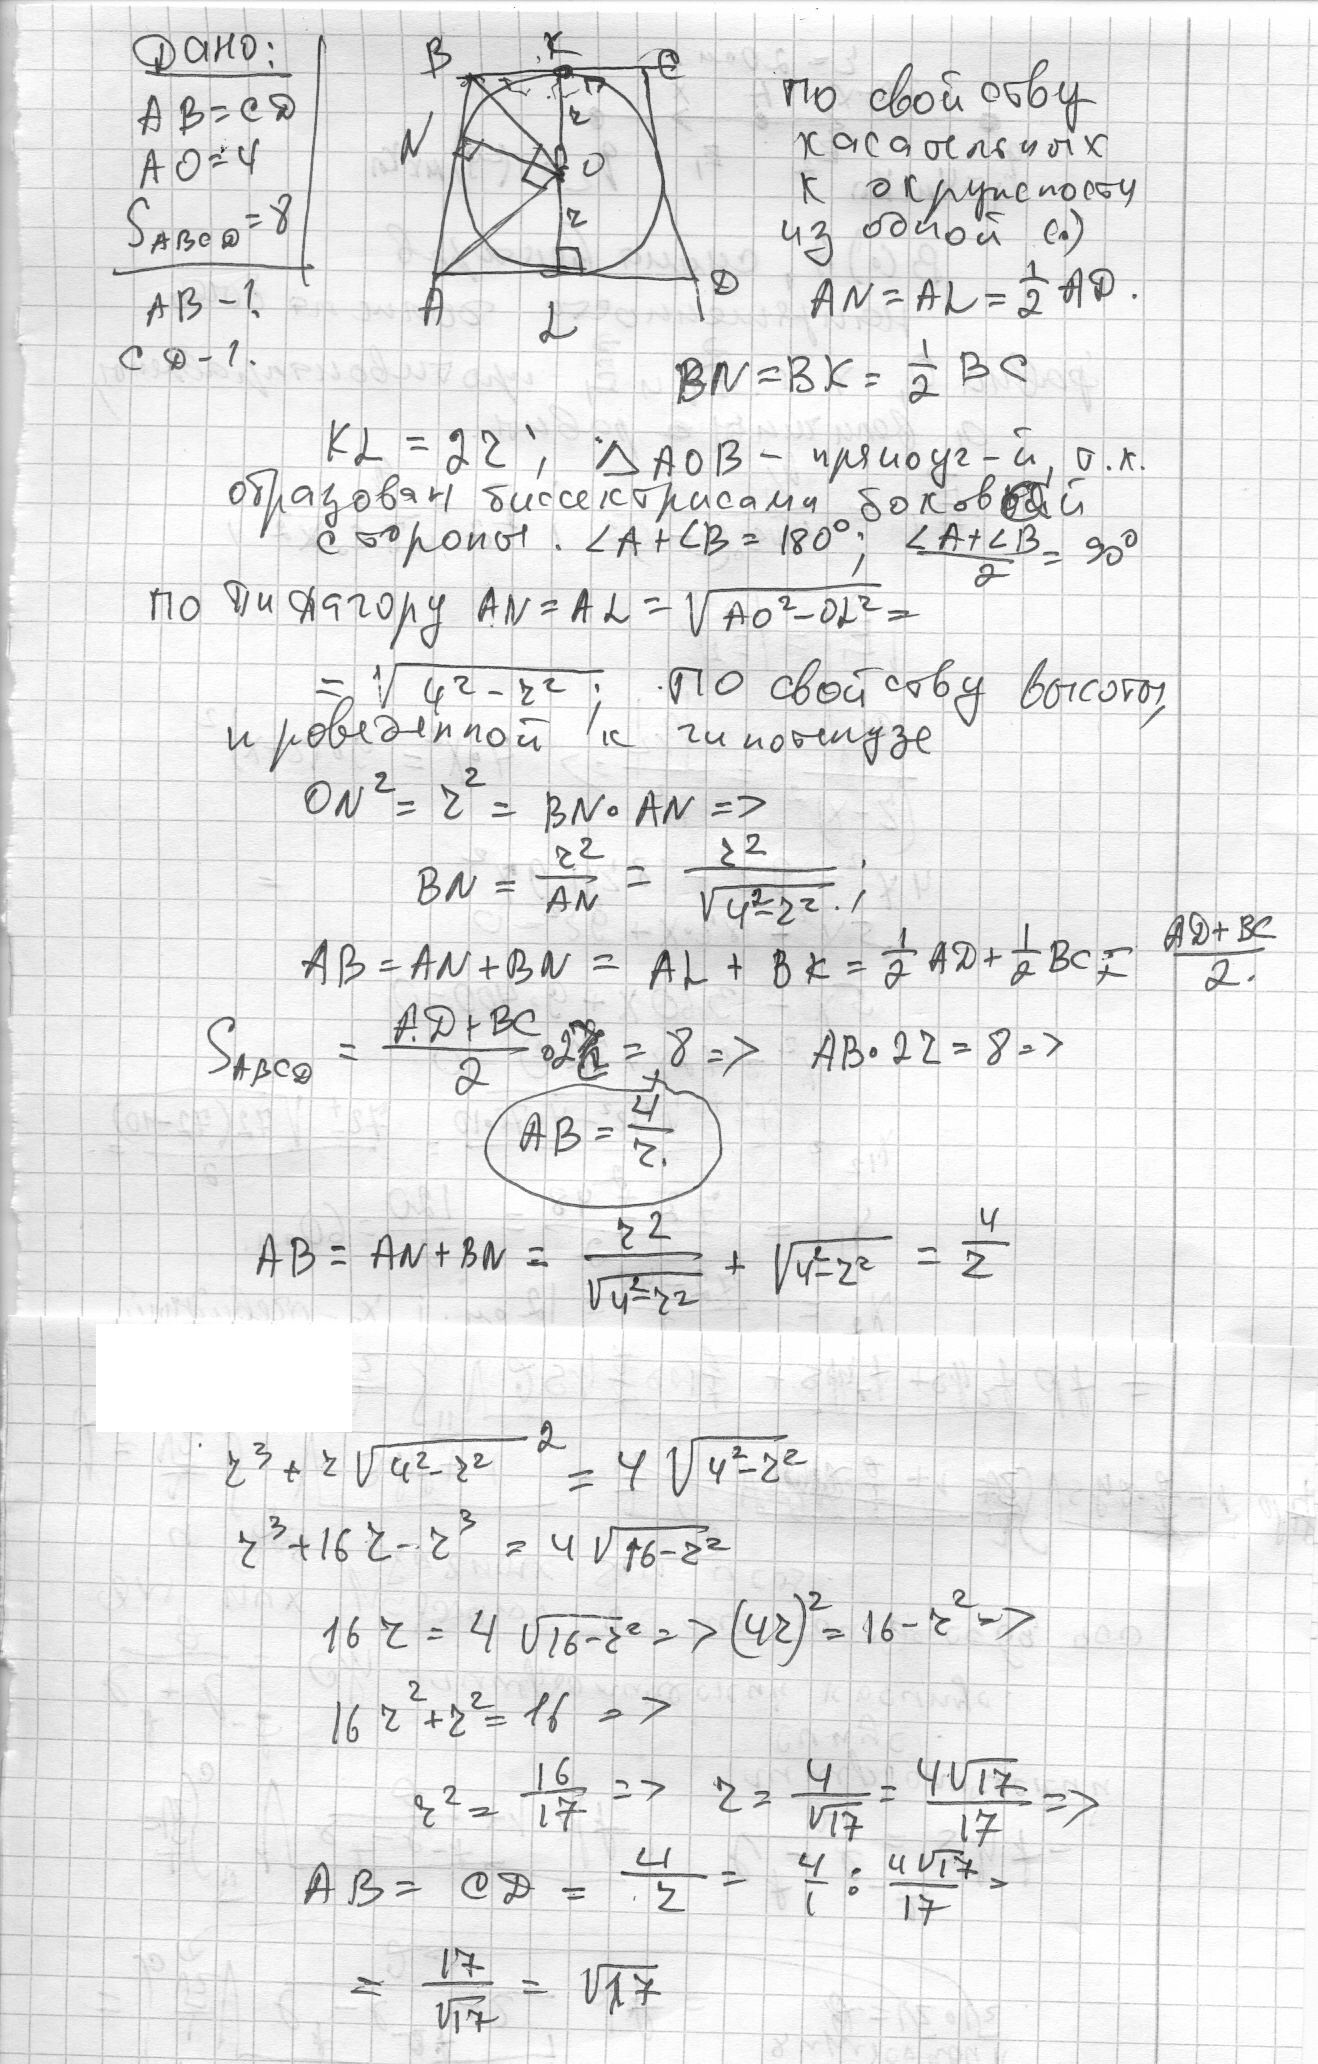 Дано:
AB=CD
AO=4
S_ABCD=8
AB-?
CD-?
B K C
N
r
O
r
A L D
по свойству
касательных
к окружности
из одной (·)
AN=AL=1/2 AD.
BN=BK=1/2 BC
KL=2r; △AOB - прямоуг-й, т.к.
образован биссектрисами боковой
стороны. ∠A+∠B=180°; (∠A+∠B)/2=90°
по Пифагору AN=AL=√(AO²-OL²)=
=√(4²-r²); по свойству высоты,
проведенной к гипотенузе
ON²=r²=BN·AN=>
BN=r²/AN=r²/√(4²-r²);
AB=AN+BN=AL+BK=1/2 AD+1/2 BC=(AD+BC)/2.
S_ABCD=(AD+BC)/2·2r=8=> AB·2r=8=>
AB=4/r.
AB=AN+BN=r²/√(4²-r²)+√(4²-r²)=4/r
r³+r√(4²-r²)²=4√(4²-r²)
r³+16r-r³=4√(16-r²)
16r=4√(16-r²)=>(4r)²=16-r²=>
16r²+r²=16=>
r²=16/17=> r=4/√17=4√17/17=>
AB=CD=4/r=4/1:4√17/17=
=17/√17=√17